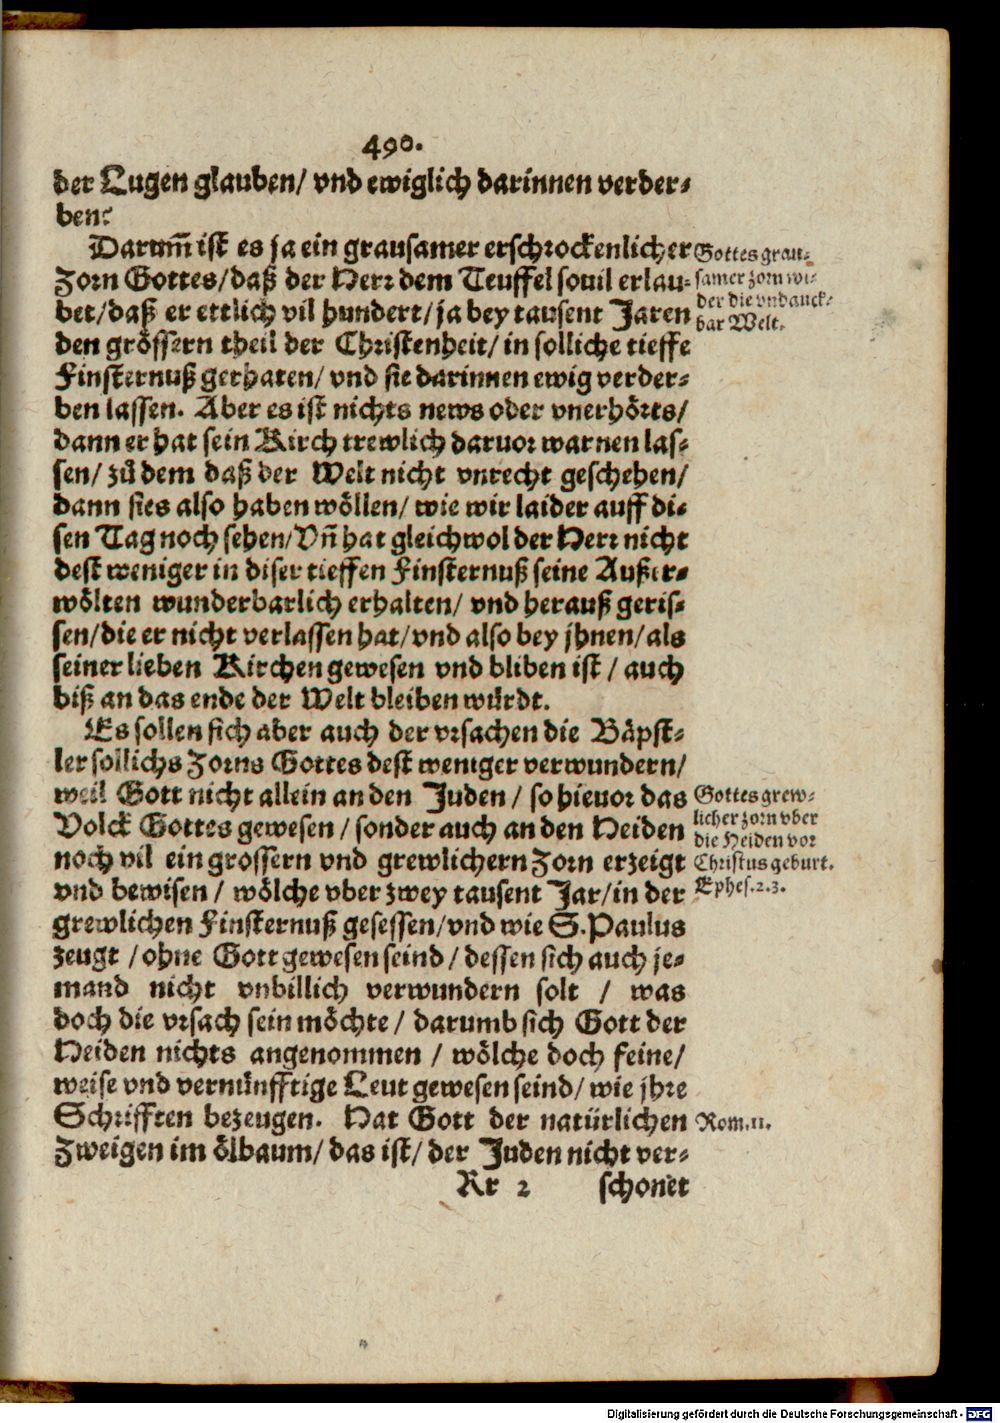 490.
der Lugen glauben/ vnd ewiglich darinnen verder-
ben?
Darum̃ ist es ja ein grausamer erschrockenlicher
Zorn Gottes/daß der Herr dem Teuffel souil erlau-
bet/daß er ettlich vil hundert/ja bey tausent Jaren
den grössern theil der Christenheit/ in solliche tieffe
Finsternuß gerhaten/ vnd sie darinnen ewig verder-
ben lassen. Aber es ist nichts news oder vnerhörts/
dann er hat sein Kirch trewlich daruor warnen las-
sen/ zů dem daß der Welt nicht vnrecht geschehen/
dann sies also haben wöllen/ wie wir laider auff di-
sen Tag noch sehen/Vñ hat gleichwol der Herr nicht
dest weniger in diser tieffen Finsternuß seine Außer-
wölten wunderbarlich erhalten/ vnd herauß geris-
sen/die er nicht verlassen hat/vnd also bey jhnen/als
seiner lieben Kirchen gewesen vnd bliben ist / auch
biß an das ende der Welt bleiben würdt.
Es sollen sich aber auch der vrsachen die Bäpst-
ler sollichs Zorns Gottes dest weniger verwundern/
weil Gott nicht allein an den Juden / so hieuor das
Volck Gottes gewesen / sonder auch an den Heiden
noch vil ein grossern vnd grewlichern Zorn erzeigt
vnd bewisen / wölche vber zwey tausent Jar/in der
grewlichen Finsternuß gesessen/vnd wie S. Paulus
zeugt /ohne Gott gewesen seind / dessen sich auch je-
mand nicht vnbillich verwundern solt / was
doch die vrsach sein möchte / darumb sich Gott der
Heiden nichts angenommen / wölche doch feine/
weise vnd vernünfftige Leut gewesen seind/ wie jhre
Schrifften bezeugen. Hat Gott der natürlichen
Zweigen im ölbaum/ das ist/ der Juden nicht ver-
Rr 2 schonet
Gottes grau-
samer zorn wi-
der die vndanck-
bar Welt.
Gottes grew-
licher zorn vber
die Heiden vor
Christus geburt.
Ephes. 2. 3.
Rom. 11.
Digitalisierung gefördert durch die Deutsche Forschungsgemeinschaft - DFG